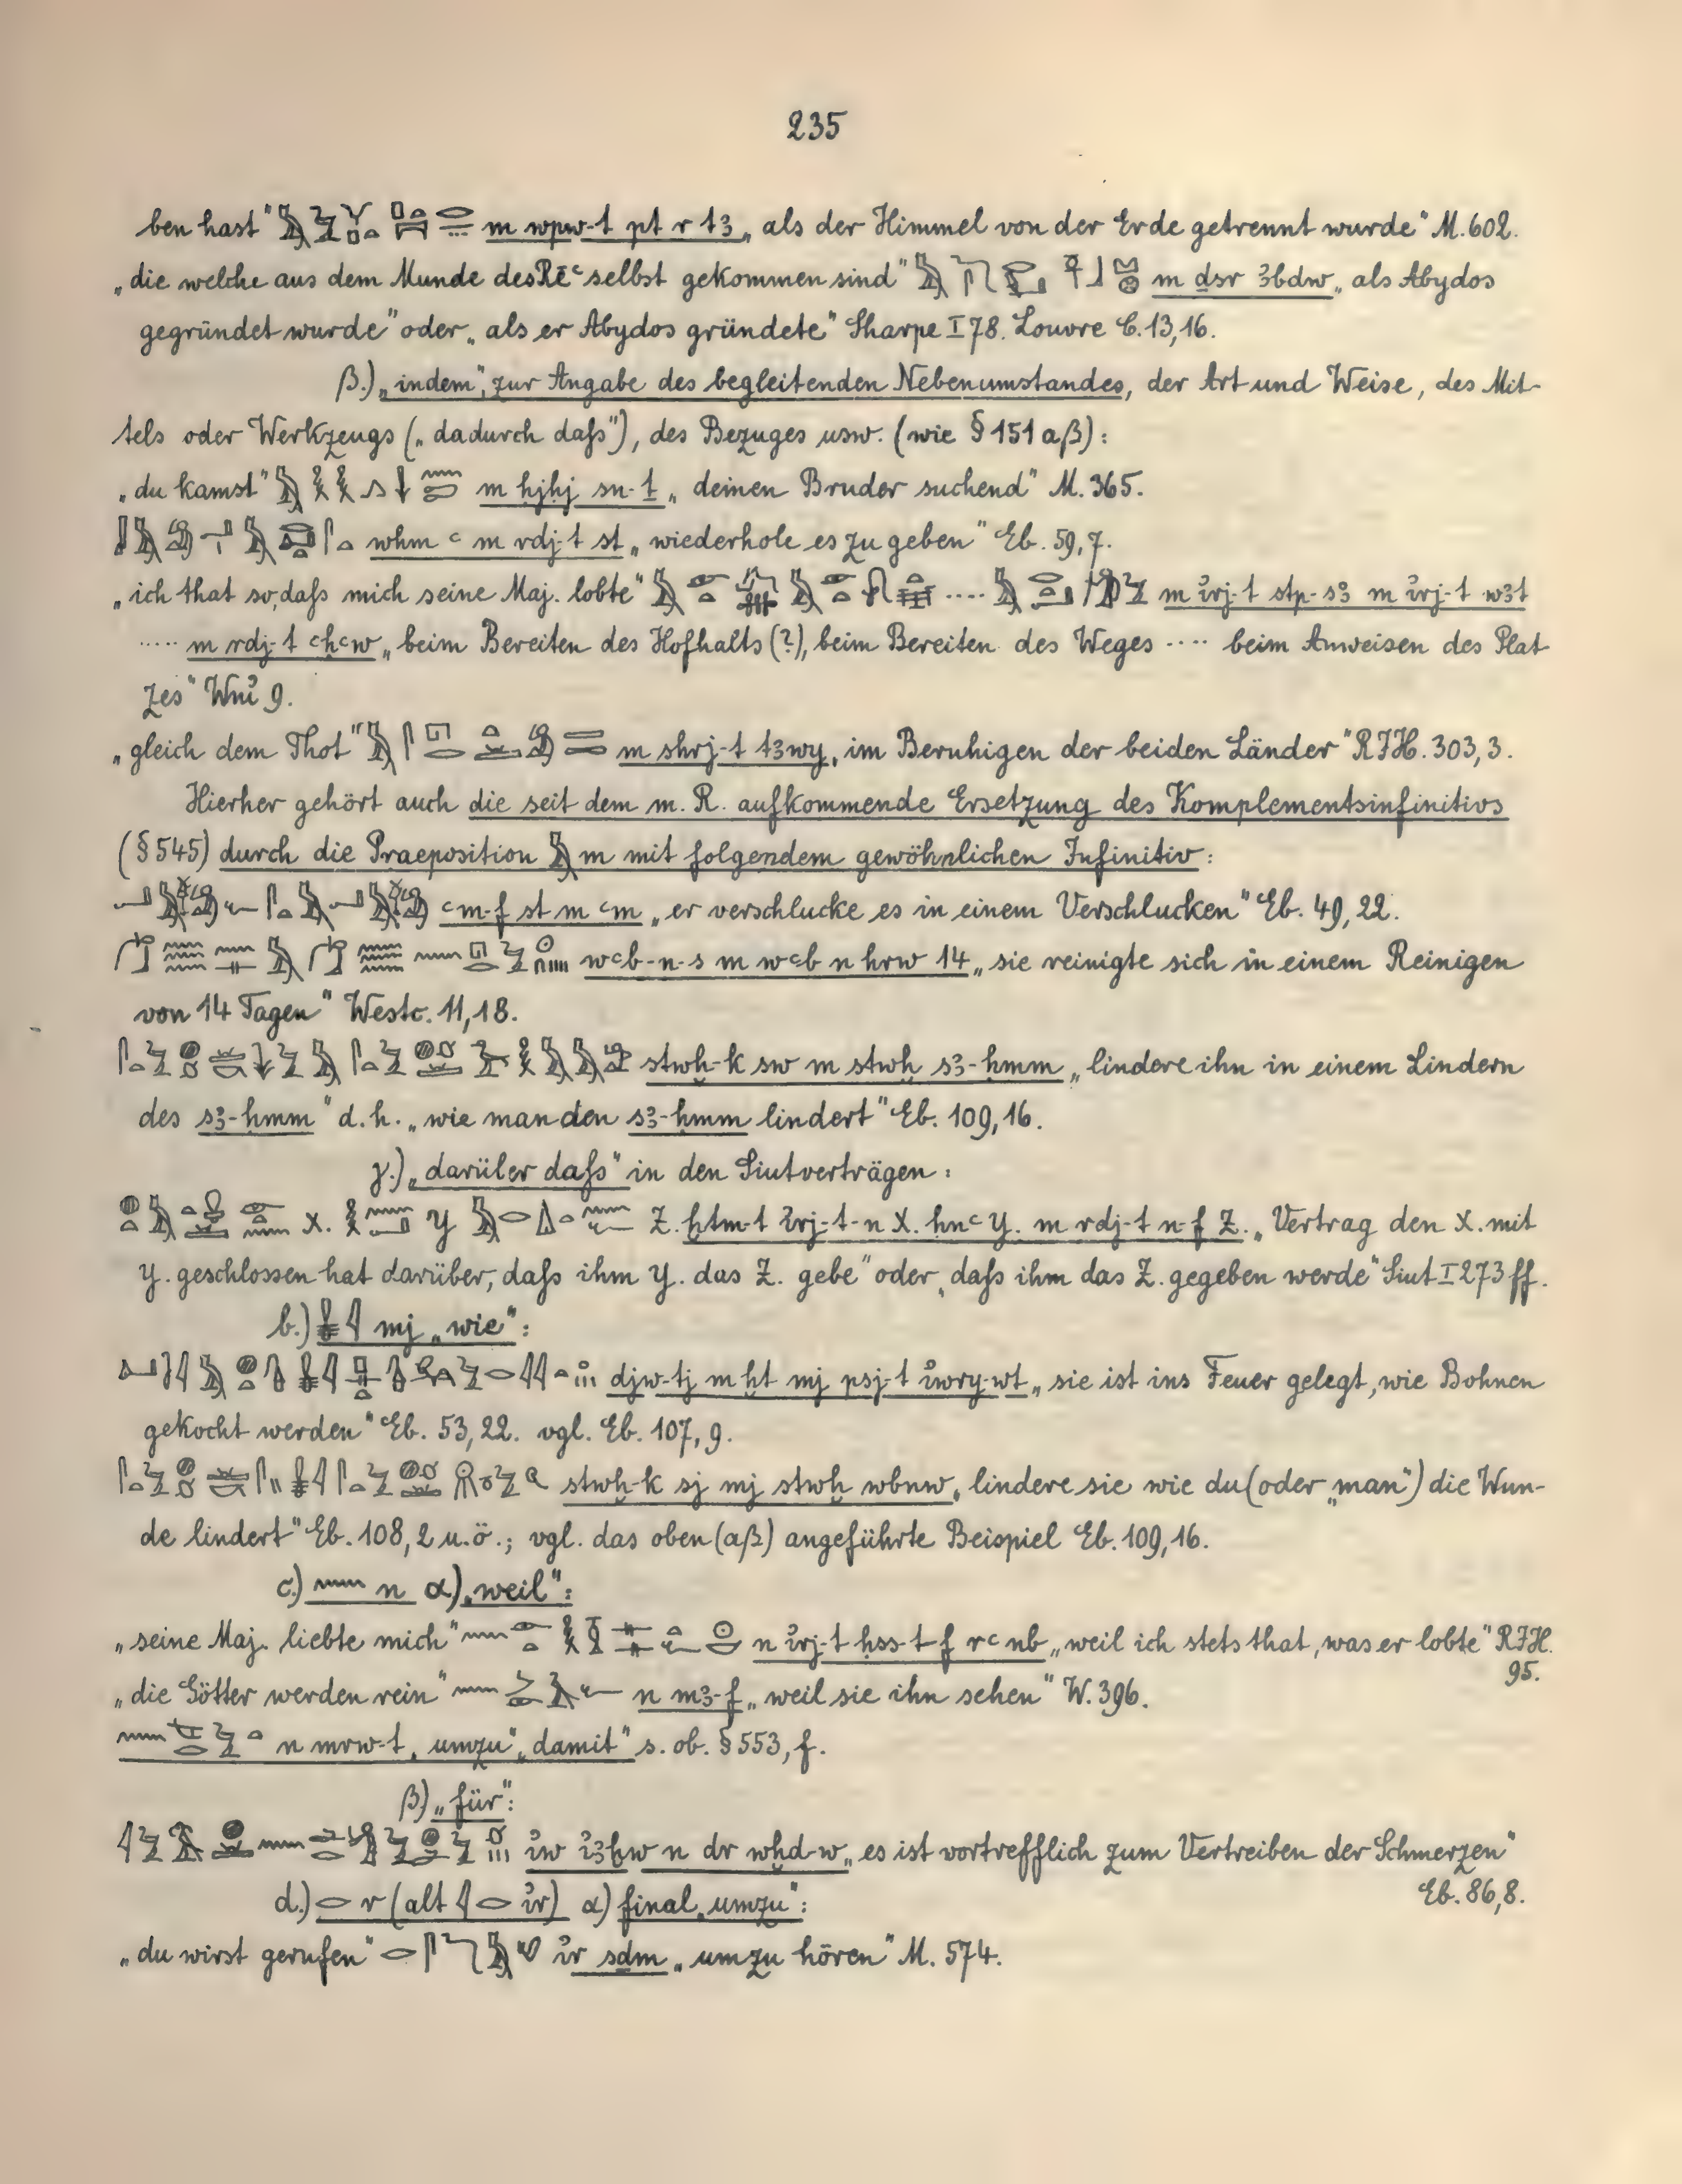 235
ben hast" m wpw-t pt r t3 „als der Himmel von der Erde getrennt wurde" M. 602.
„die welche aus dem Munde des Rēꜥ selbst gekommen sind" m ḏsr 3bdw „als Abydos
gegründet wurde" oder „als er Abydos gründete" Sharpe I 78. Louvre C. 13, 16.
β.) „indem", zur Angabe des begleitenden Nebenumstandes, der Art und Weise, des Mit-
tels oder Werkzeugs („dadurch daſs"), des Bezuges usw. (wie § 151 aβ):
„du kamst" m ḥjḥj sn-ṯ „deinen Bruder suchend" M. 365.
wḥm ꜥ m rdj-t st „wiederhole es zu geben" Eb. 59, 7.
„ich that so, daſs mich seine Maj. lobte" .... m ı͗rj-t stp-s3 m ı͗rj-t w3t
..... m rdj-t ꜥḥꜥw „beim Bereiten des Hofhalts (?), beim Bereiten des Weges .... beim Anweisen des Plat-
zes" Wnı͗ 9.
„gleich dem Thot" m shrj-t t3wy „im Beruhigen der beiden Länder" RIH. 303, 3.
Hierher gehört auch die seit dem m. R. aufkommende Ersetzung des Komplementsinfinitivs
(§ 545) durch die Praeposition m mit folgendem gewöhnlichen Infinitiv:
ꜥm-f st m ꜥm „er verschlucke es in einem Verschlucken" Eb. 49, 22.
wꜥb-n-s m wꜥb n hrw 14 „sie reinigte sich in einem Reinigen
von 14 Tagen" Westc. 11, 18.
stwḫ-k sw m stwḫ s3-ḥmm „lindere ihn in einem Lindern
des s3-ḥmm" d. h. „wie man den s3-ḥmm lindert" Eb. 109, 16.
γ.) „darüber daſs" in den Siutverträgen:
X. Y Z. ḫtm-t ı͗rj-t-n X. ḥnꜥ Y. m rdj-t n-f Z. „Vertrag den X. mit
Y. geschlossen hat darüber, daſs ihm Y. das Z. gebe" oder „daſs ihm das Z. gegeben werde" Siut I 273 ff.
b.) mj „wie":
djw-tj m ḫt mj psj-t ı͗wry-wt „sie ist ins Feuer gelegt, wie Bohnen
gekocht werden" Eb. 53, 22. vgl. Eb. 107, 9.
stwḫ-k sj mj stwḫ wbnw „lindere sie wie du (oder „man") die Wun-
de lindert" Eb. 108, 2 u. ö.; vgl. das oben (aβ) angeführte Beispiel Eb. 109, 16.
c.) n α) „weil":
„seine Maj. liebte mich" n ı͗rj-t ḥss-t-f rꜥ nb „weil ich stets that, was er lobte" RIH.
95.
„die Götter werden rein" n m3-f „weil sie ihn sehen" W. 396.
n mrw-t „umzu", „damit" s. ob. § 553, f.
β) „für":
ı͗w ı͗3ḫw n dr wḫd-w „es ist vortrefflich zum Vertreiben der Schmerzen"
Eb. 86, 8.
d.) r (alt ı͗r) α) final „umzu":
„du wirst gerufen" ı͗r sḏm „um zu hören" M. 574.